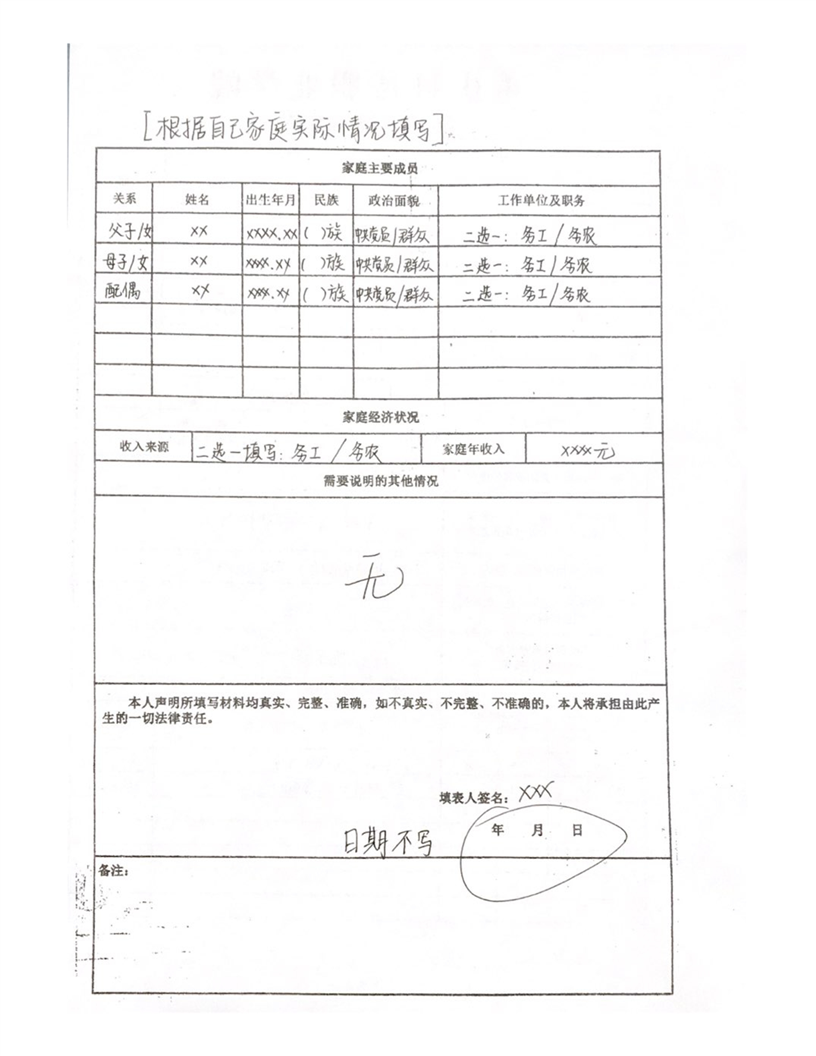 [根据自己家庭实际情况填写]。
家庭主要成员
关系 姓名 出生年月 民族 政治面貌 工作单位及职务
父子/女 XX XXXX.XX ( )族 中共党员/群众 二选一: 务工/务农
母子/女 XX XXXX.XX ( )族 中共党员/群众 二选一: 务工/务农
配偶 XX XXXX.XX ( )族 中共党员/群众 二选一: 务工/务农
家庭经济状况
收入来源 二选一填写: 务工/务农 家庭年收入 XXXX元
需要说明的其他情况
无
本人声明所填写材料均真实、完整、准确，如不真实、不完整、不准确的，本人将承担由此产
生的一切法律责任。
填表人签名: XXX
年 月 日
日期不写
备注: